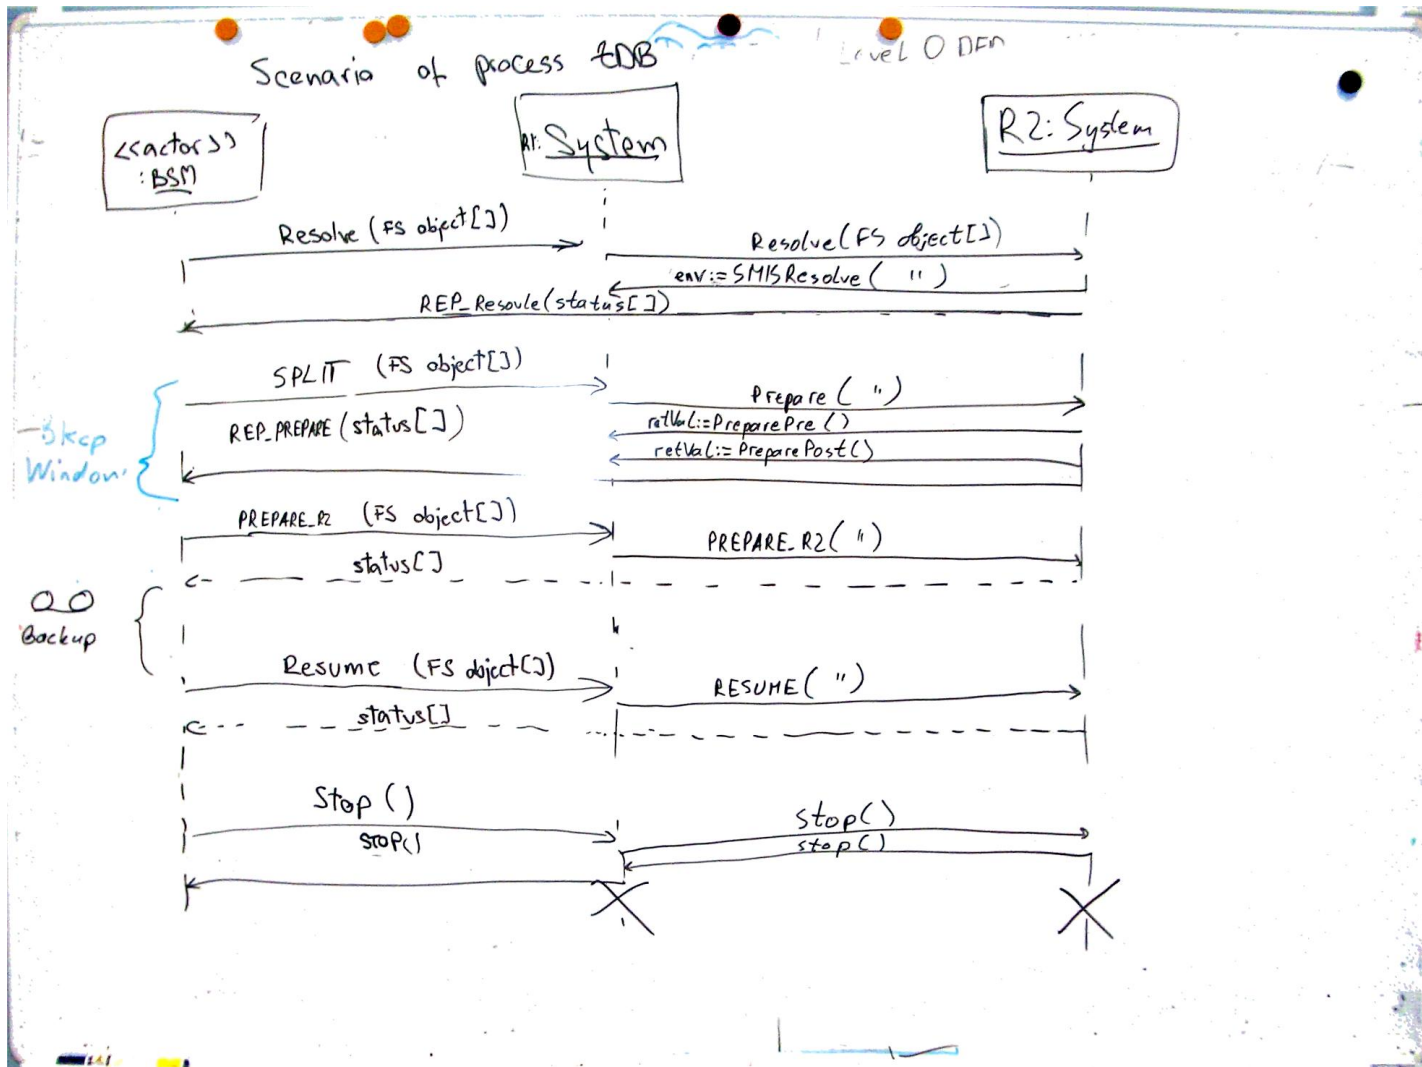 Scenario of process tDB
Level 0 DFD
<<actor>>
:BSM
R1: System
R2: System
Resolve (FS object[])
Resolve (FS object[])
env:= SMISResolve ( " )
REP_Resovle (status[])
SPLIT (FS object[])
Prepare ( " )
REP_PREPARE (status[])
retVal:=PreparePre ()
retVal:= PreparePost()
Bkcp
Window
PREPARE_R2 (FS object[])
PREPARE_R2 ( " )
status[]
Backup
Resume (FS object[])
RESUME ( " )
status[]
Stop ()
stop()
stop()
stop()